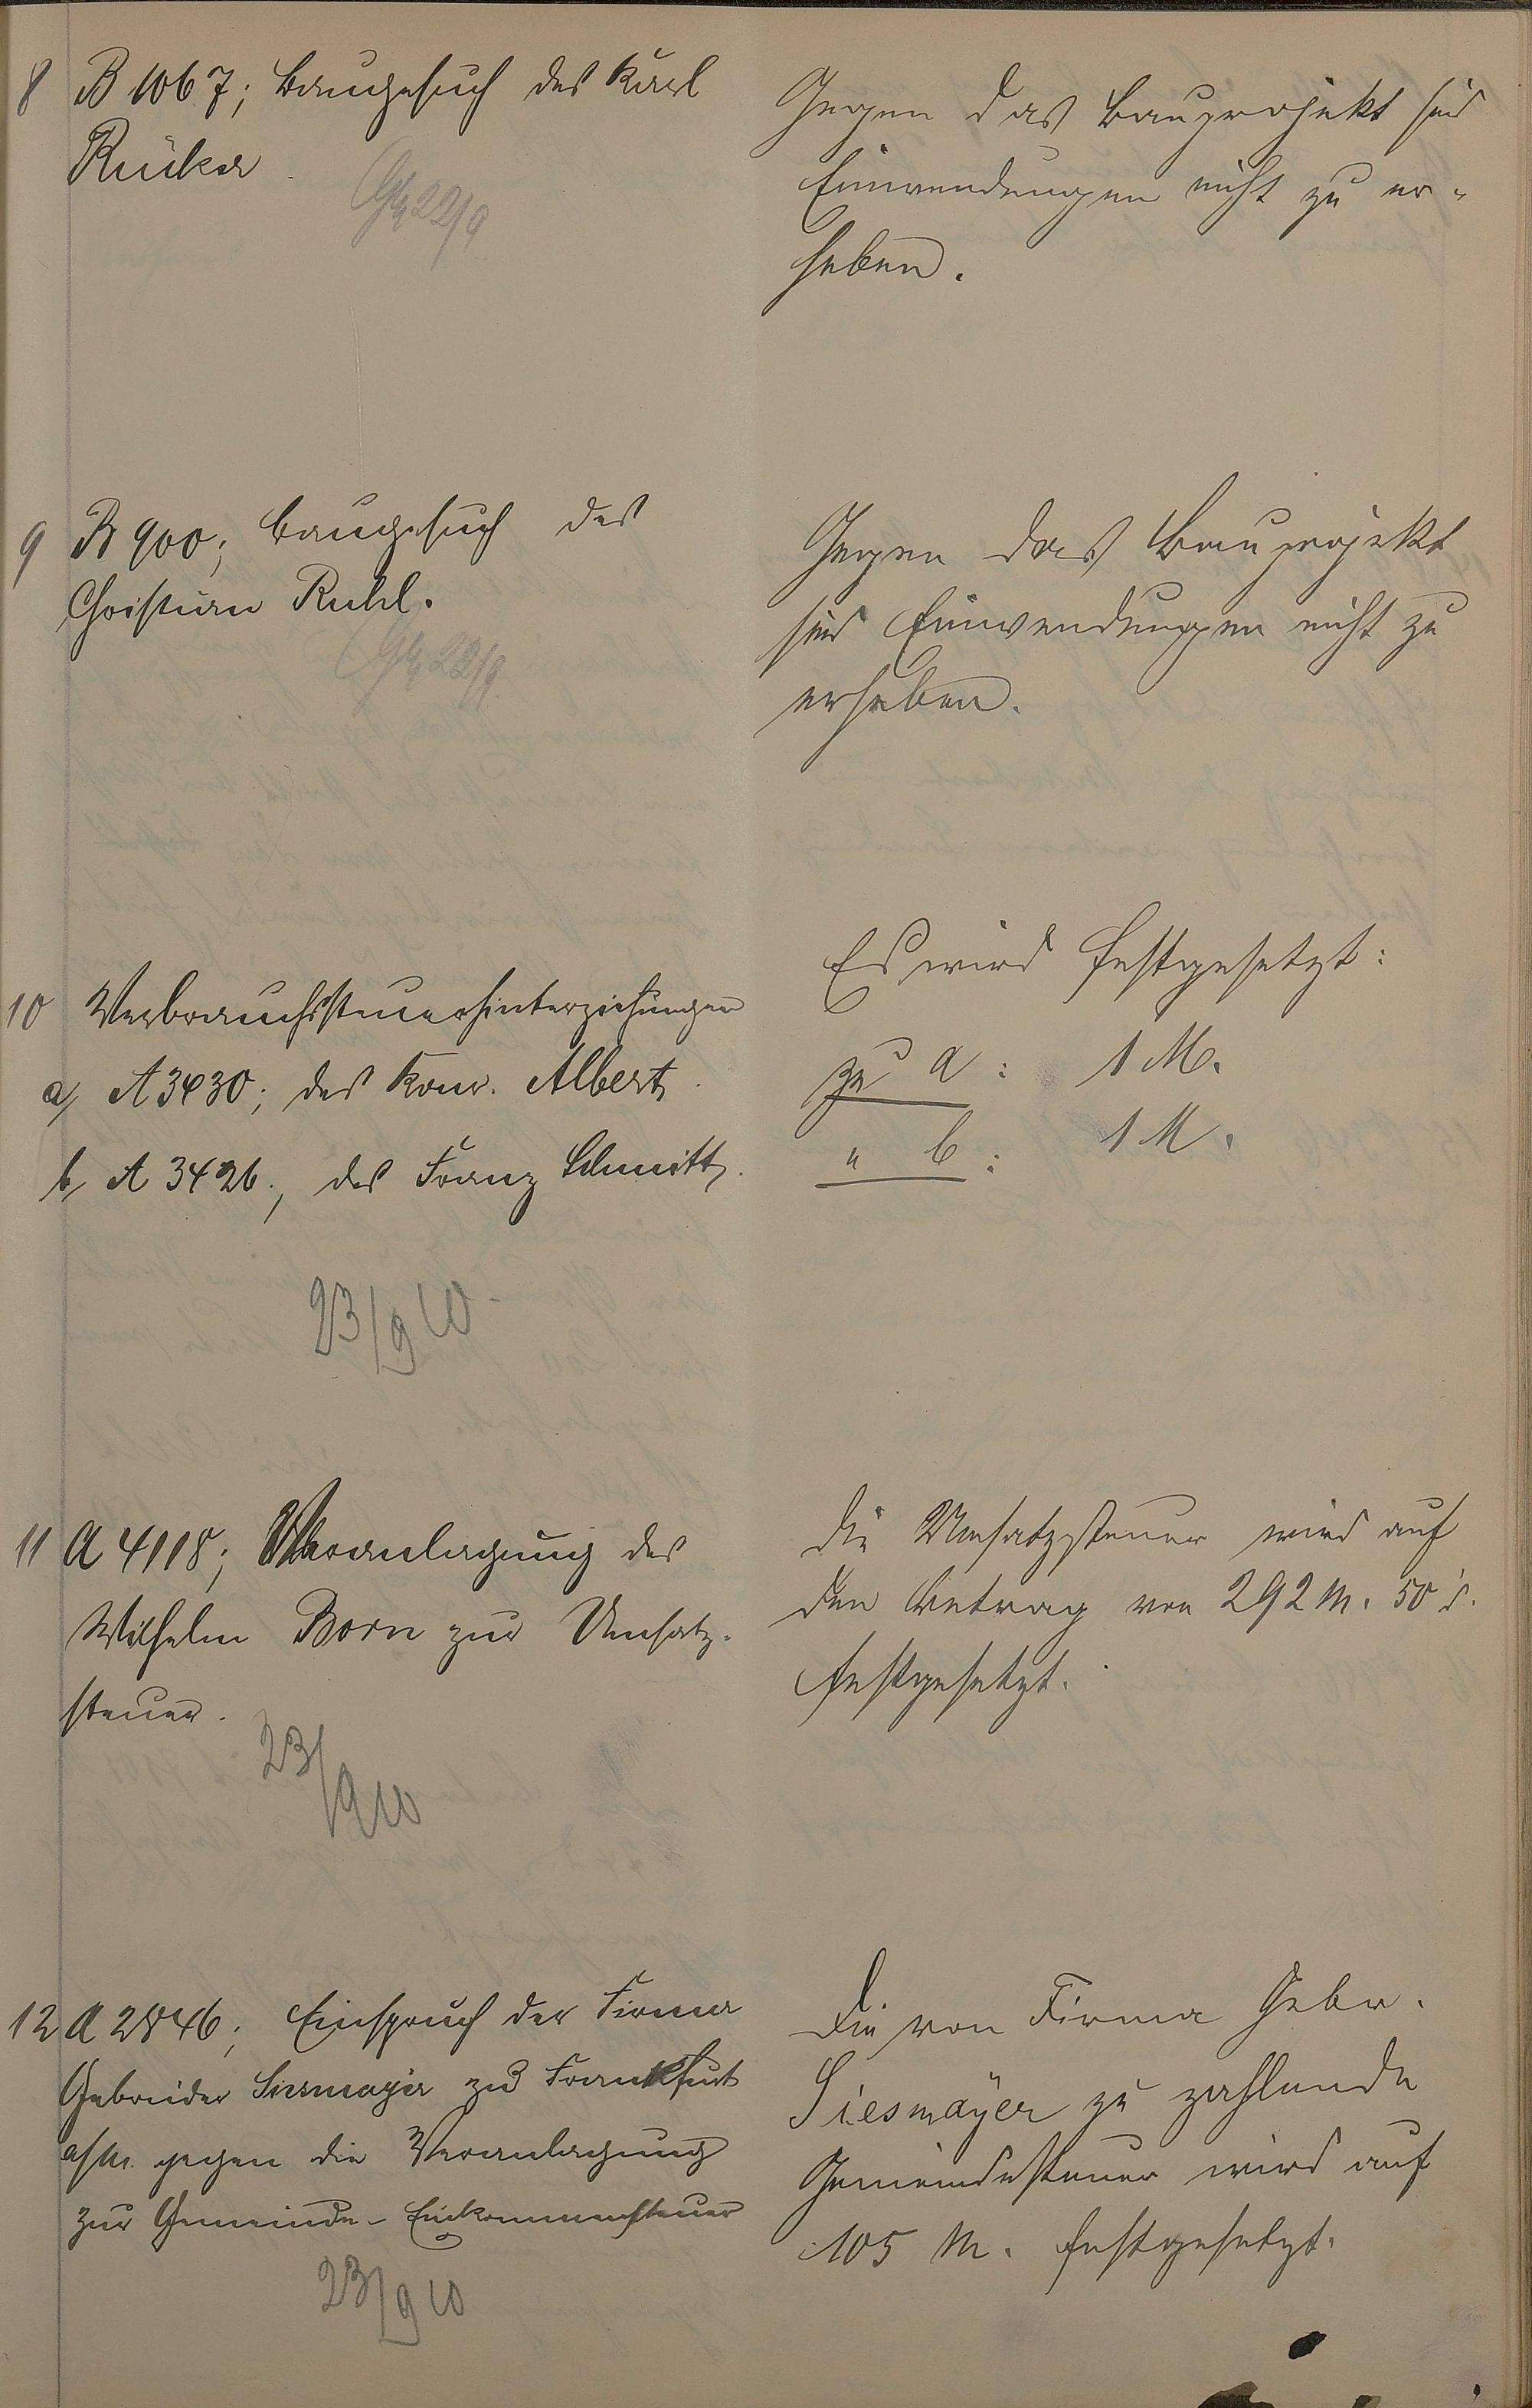 8 B 1067; Baugesuch des Karl
Rücker
22/9
Gegen das Bauprojekt sind
Einwendungen nicht zu er-
heben.
9 B 900; Baugesuch des
Christian Ruhl.
22/9
Gegen das Bauprojekt
sind Einwendungen nicht zu
erheben.
10 Verbrauchssteuerhinterziehungen
a, A 3430; des Konr. Albert
b, A 3426; des Franz Schmitt
23/9 10
Es wird festgesetzt:
zu a: 1 M.
" b: 1 M.
11 A 4118; Veranlagung des
Wilhelm Born zur Umsatz-
steuer.
23/9 10
Die Umsatzsteuer wird auf
den Betrag von 292 M. 50 d.
festgesetzt.
12 A 2846; Einspruch der Firma
Gebrüder Siesmayer zu Frankfurt
a/M. gegen die Veranlagung
zur Gemeinde-Einkommensteuer
23/9 10
Die von Firma Gebr.
Siesmayer zu zahlende
Gemeindesteuer wird auf
105 M. festgesetzt.